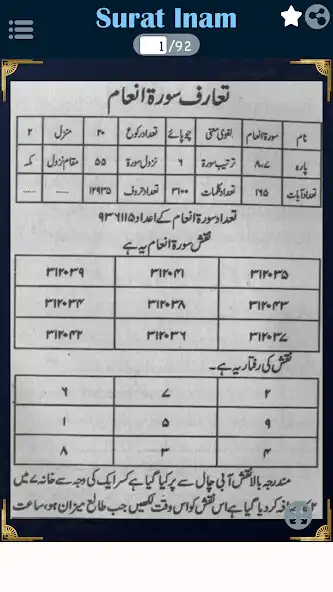 Surat Inam
1/92
تعارف سورۃ انعام
نام سورۃ انعام لغوی معنی چوپائے تعداد رکوع ۲۰ منزل ۲
پارہ ۸،۷ ترتیب سورۃ ۶ نزول سورۃ ۵۵ مقام نزول مکہ
تعداد آیات ۱۶۵ تعداد کلمات ۳۱۰۰ تعداد حروف ۱۲۹۳۵ ......
تعداد سورۃ انعام کے اعداد ۹۳۶۱۱۵
نقش سورۃ انعام یہ ہے
۳۱۲۰۳۵ ۳۱۲۰۴۱ ۳۱۲۰۳۹
۳۱۲۰۴۳ ۳۱۲۰۳۸ ۳۱۲۰۳۴
۳۱۲۰۳۷ ۳۱۲۰۳۶ ۳۱۲۰۴۲
نقش کی رفتار یہ ہے۔
۲ ۷ ۶
۹ ۵ ۱
۴ ۳ ۸
مندرجہ بالا نقش آبی چال سے پر کیا گیا ہے کسر ایک کی وجہ سے خانہ ۷ میں
کر دیا گیا ہے اس نقش کو اس وقت لکھیں جب طالع میزان ہو، ساعت